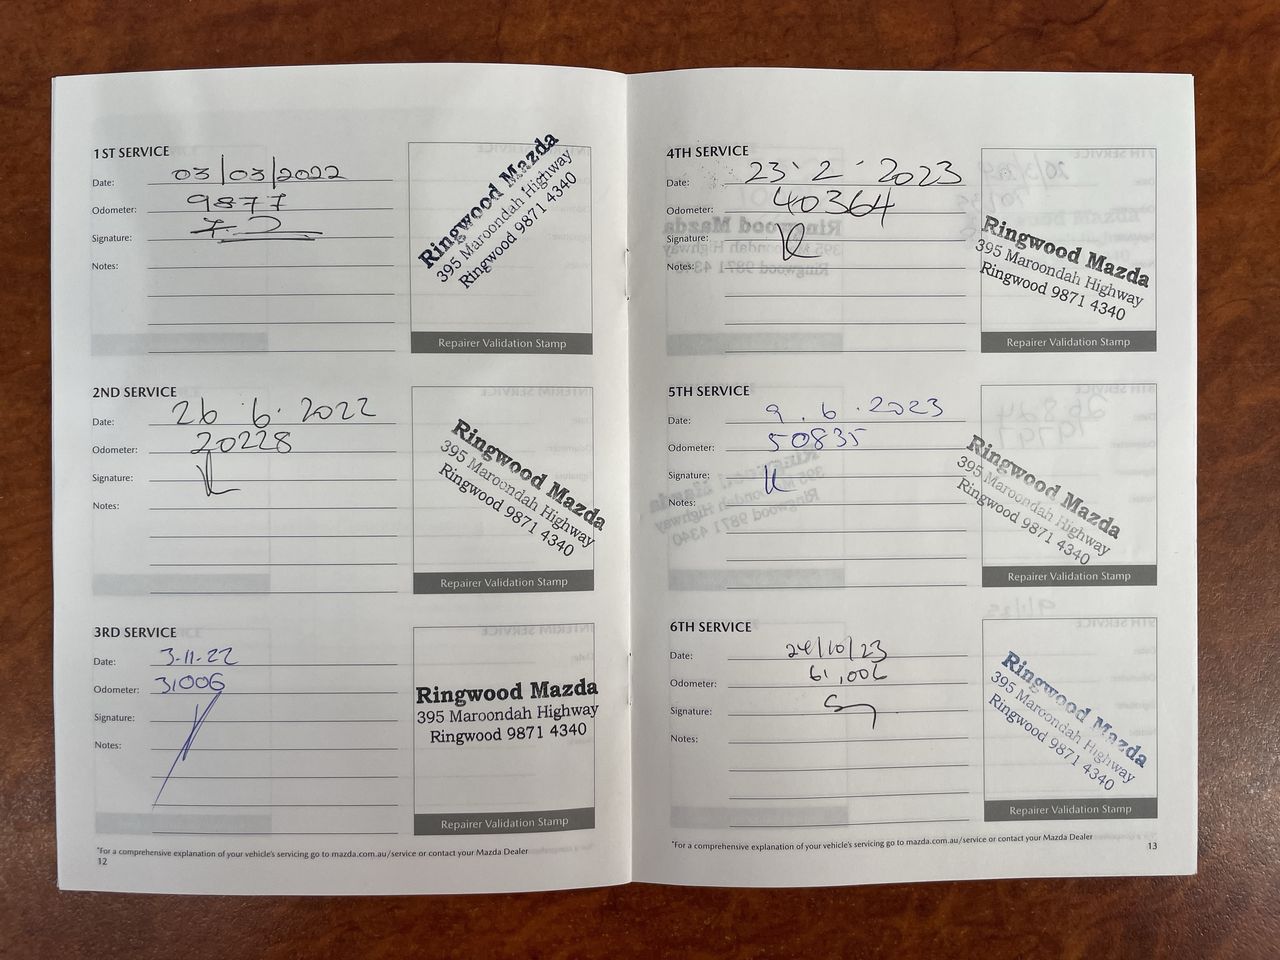 1ST SERVICE
Date: 03/03/2022
Odometer: 9877
Signature:
Notes:
Ringwood Mazda
395 Maroondah Highway
Ringwood 9871 4340
Repairer Validation Stamp
2ND SERVICE
Date: 26.6.2022
Odometer: 20228
Signature:
Notes:
Ringwood Mazda
395 Maroondah Highway
Ringwood 9871 4340
Repairer Validation Stamp
3RD SERVICE
Date: 3.11.22
Odometer: 31006
Signature:
Notes:
Ringwood Mazda
395 Maroondah Highway
Ringwood 9871 4340
Repairer Validation Stamp
*For a comprehensive explanation of your vehicle's servicing go to mazda.com.au/service or contact your Mazda Dealer
12
4TH SERVICE
Date: 23.2.2023
Odometer: 40364
Signature:
Notes:
Ringwood Mazda
395 Maroondah Highway
Ringwood 9871 4340
Repairer Validation Stamp
5TH SERVICE
Date: 9.6.2023
Odometer: 50835
Signature:
Notes:
Ringwood Mazda
395 Maroondah Highway
Ringwood 9871 4340
Repairer Validation Stamp
6TH SERVICE
Date: 24/10/23
Odometer: 61,006
Signature:
Notes:
Ringwood Mazda
395 Maroondah Highway
Ringwood 9871 4340
Repairer Validation Stamp
*For a comprehensive explanation of your vehicle's servicing go to mazda.com.au/service or contact your Mazda Dealer
13